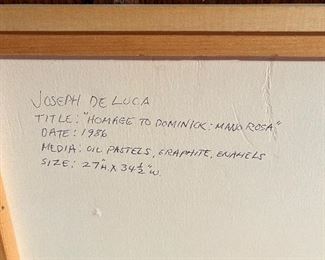 JOSEPH DE LUCA
TITLE: "HOMAGE TO DOMINICK: MANO ROSA"
DATE: 1986
MEDIA: OIL PASTELS, GRAPHITE, ENAMELS
SIZE: 27"H. X 34½"W.